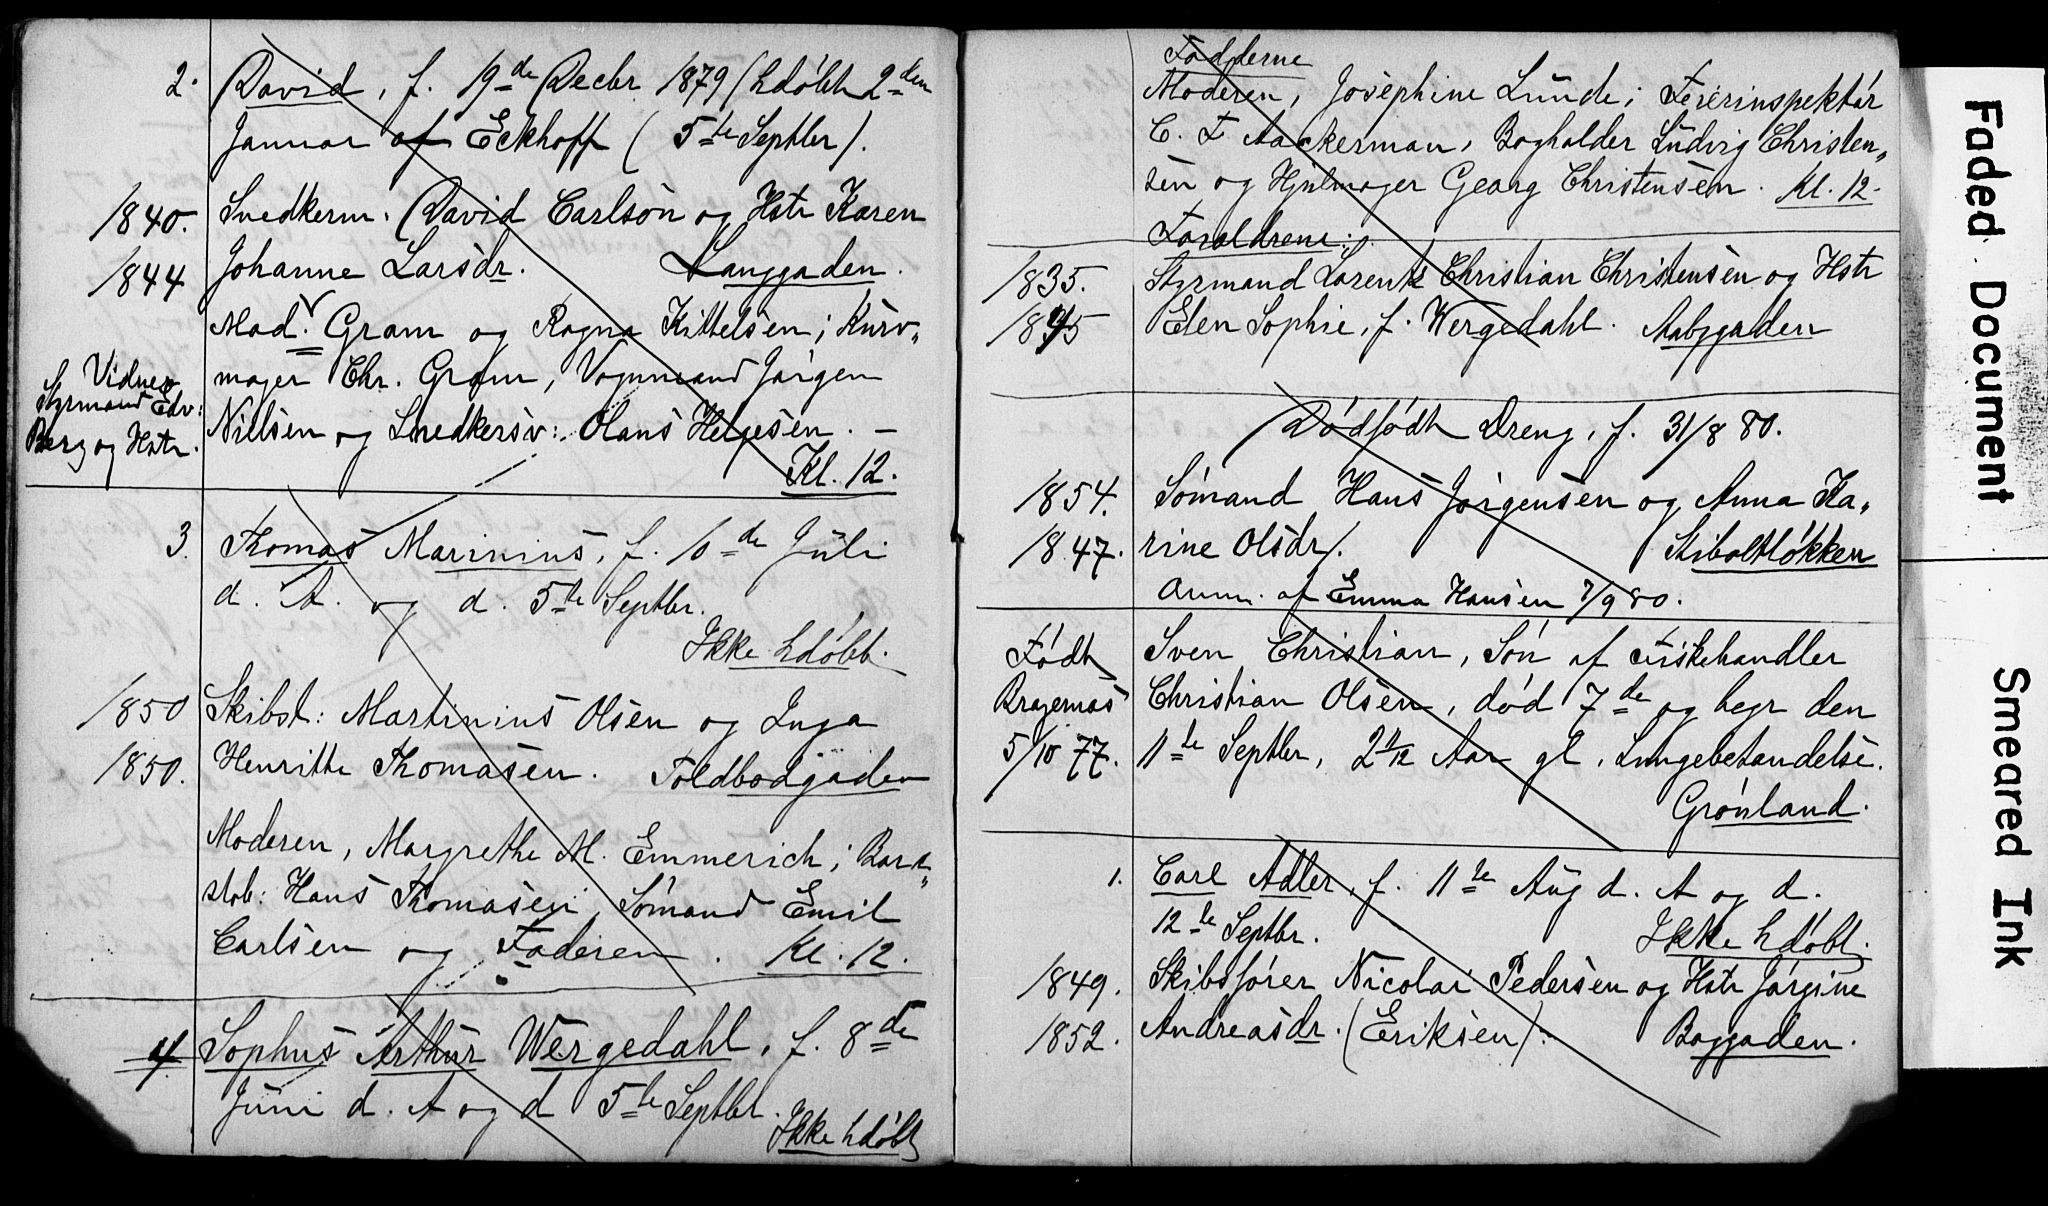 2. David, f. 19de Decbr 1879 (hdöbt 2den
Januar af Eckhoff (5te Septbr).
1840. Snedkerm. David Carlson og Hstr Karen
1844 Johanne Larsdr. Langgaden.
Mad. Gram og Ragna Kittelsen; Kurv„
mager Chr. Gram, Vognmand Jörgen
Nielsen og Snedkersv: Olaus Helgesen. –
Vidner
Styrmand Edv:
Berg og Hstr.
Kl. 12.
3. Thomas Marinius, f. 10de Juli
d. A. og d. 5te Septbr.
Ikke hdöbt.
1850 Skibst: Martinius Olsen og Inga
1850. Henritte Thomasen. Toldbodgaden
Moderen, Margrethe M. Emmerich;
Hans Thomasen, Sömand Emil
Carlsen og Faderen. Kl. 12.
4. Sophus Arthur Wergedahl, f. 8de
Juni d. A og d 5te Septbr.
Ikke hdöbt
Fadderne
Moderen, Josephine Lunde;
C. F Aackerman, Bogholder Ludvig Christen„
sen og Hjulmager Georg Christensen. Kl. 12.
Foraldrene:
1835. Styrmand Lorentz Christian Christensen og Hstr
1845 Elen Sophie, f. Wergedahl. Aabygaden
Dödfödt Dreng, f. 31/8 80.
1854. Sömand Hans Jörgensen og Anna Ka„
1847. rine Olsdr. Stiboltlökken
Anm. af Emma Hansen 7/9 80.
Födt Sven Christian, Sön af Fiskehandler
Bragernas Christian Olsen, död 7de og begr den
5/10 77. 11te Septbr, 2 11/12 Aar gl, Lungebetandelse.
Grönland.
1. Carl Adler, f. 11te Aug d. A og d.
12te Septbr. Ikke hdöbt.
1849. Skibsförer Nicolai Pedersen og Hstr Jörgine
1852. Andreasdr. (Eriksen). Baggaden.
Faded Document
Smeared Ink